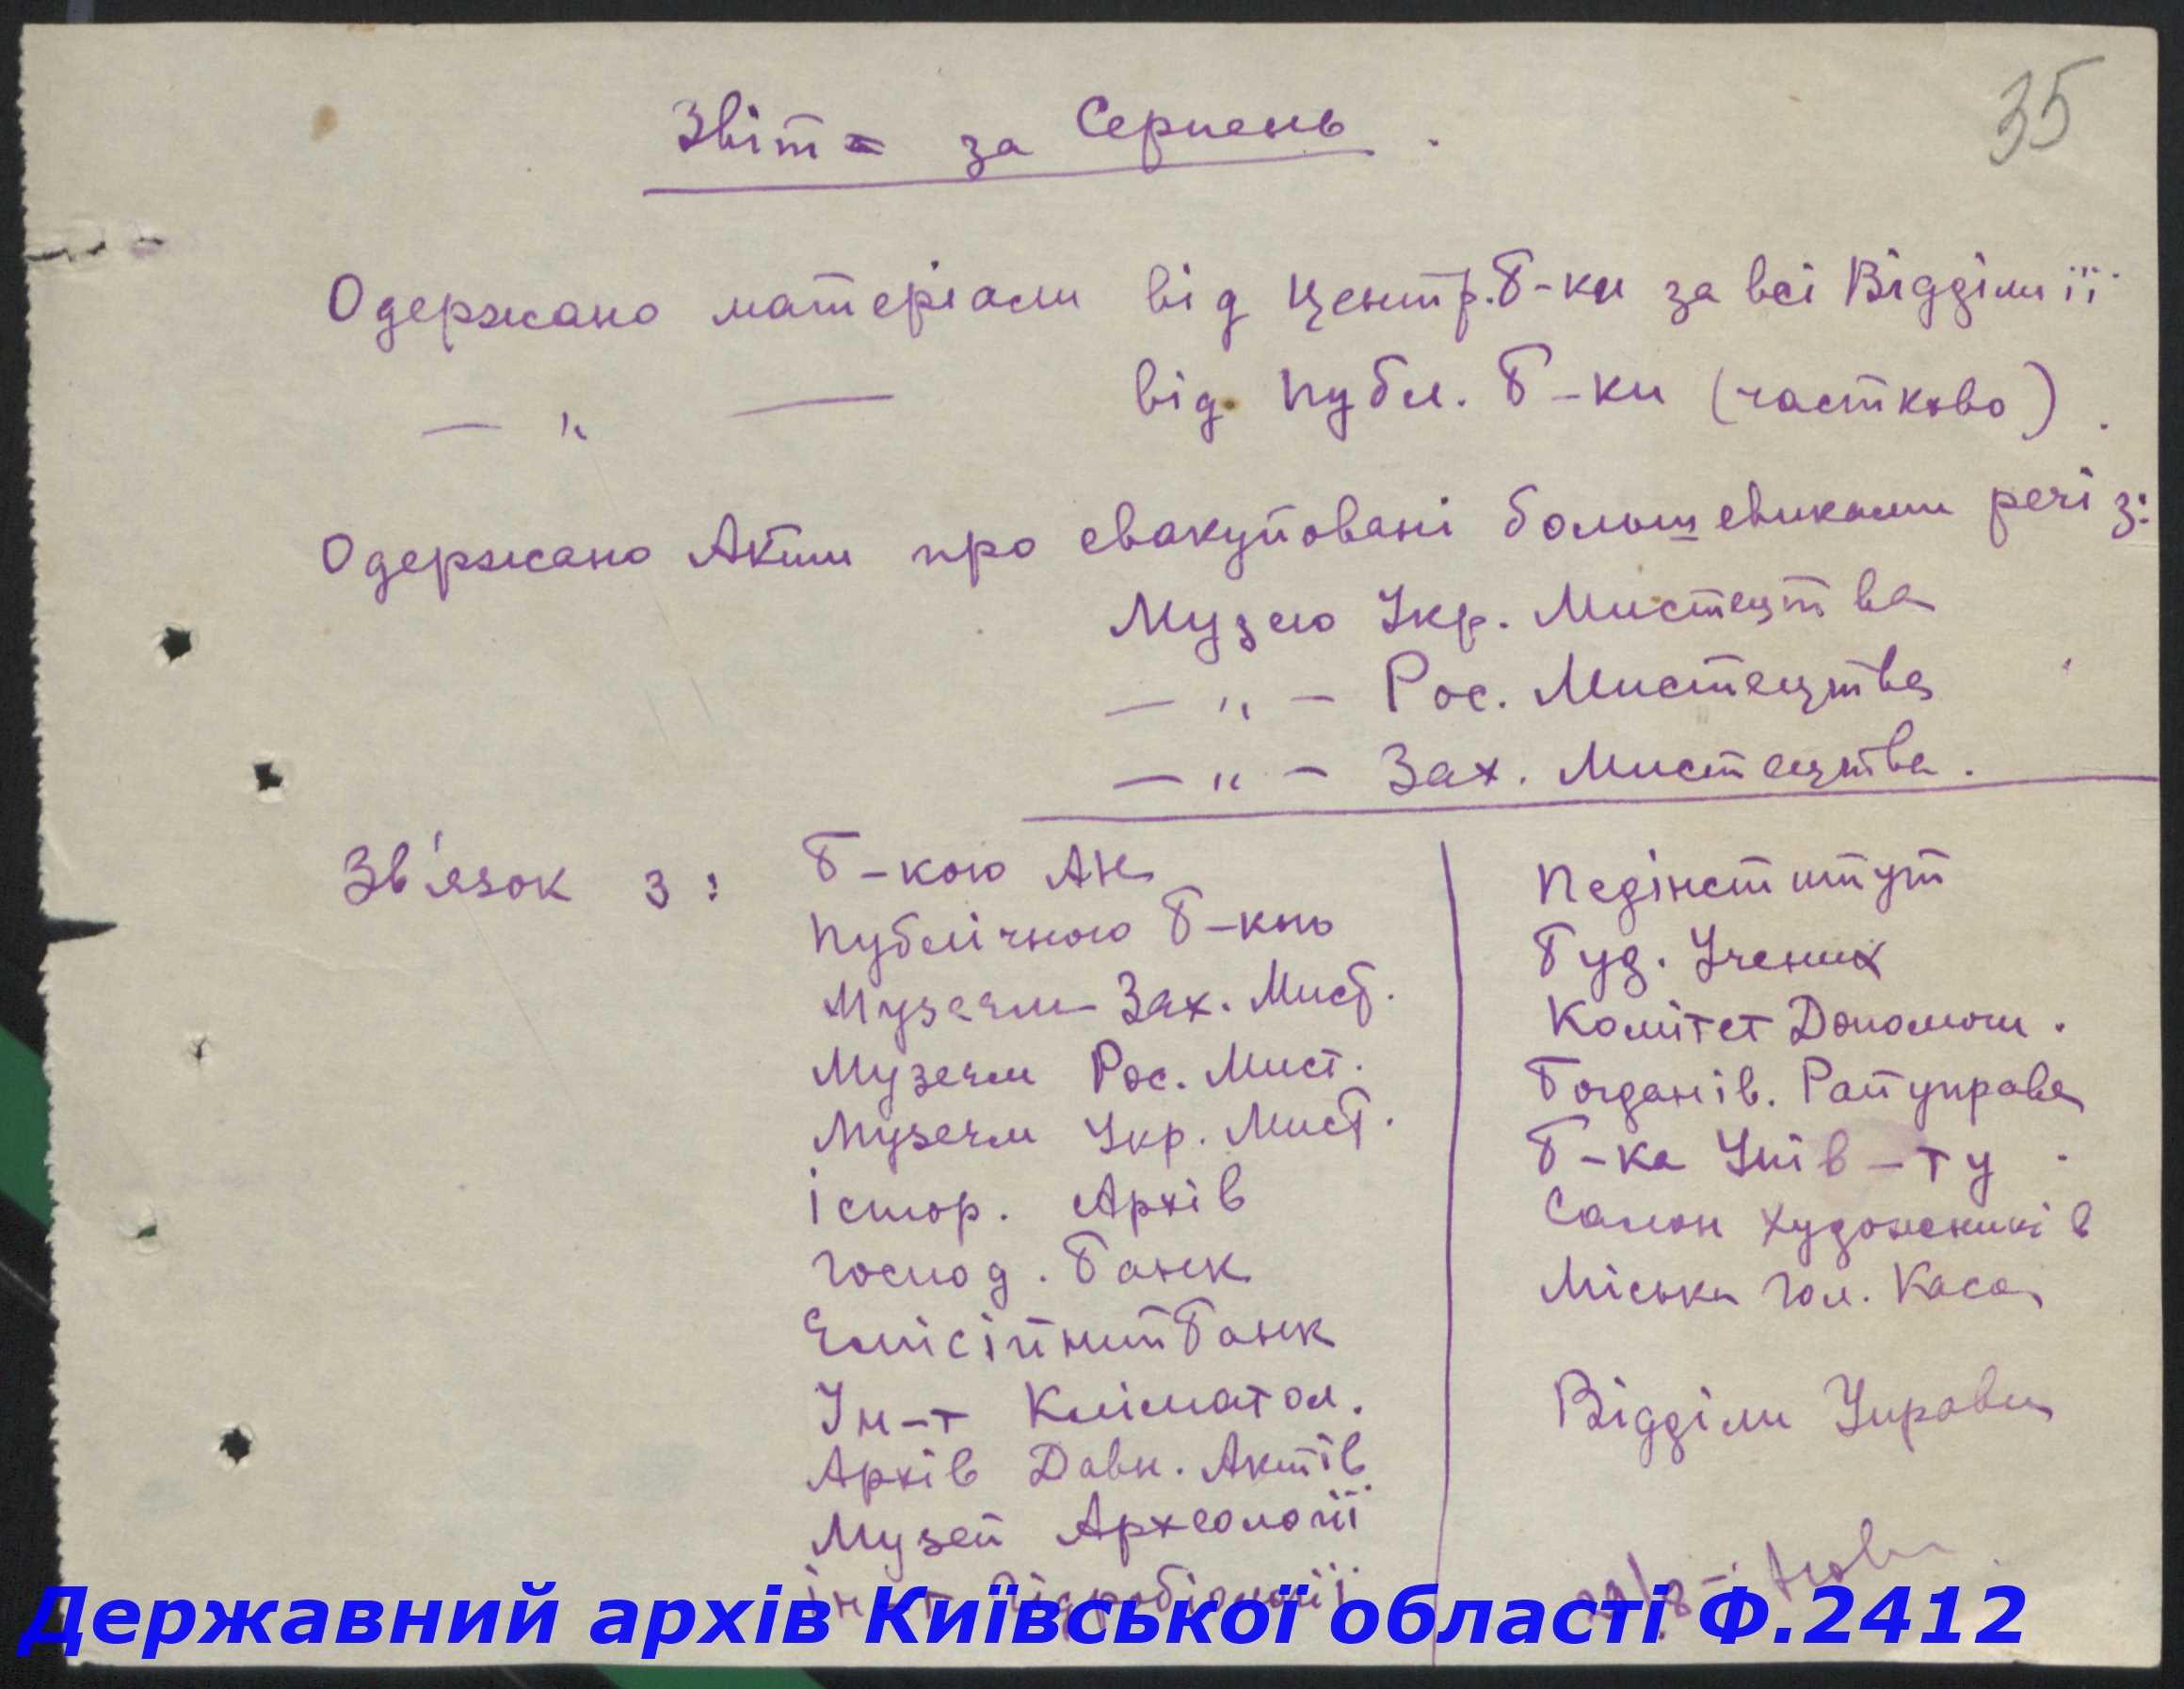 35
Звіт за Серпень.
Одержано матеріали від Центр. Б-ки за всі Відділи її
— " — від Публ. Б-ки (частково).
Одержано Акти про евакуйовані большевиками речі з:
Музею Укр. Мистецтва
— " — Рос. Мистецтва
— " — Зах. Мистецтва.
Зв'язок з:
Б-кою АН
Публічною Б-кою
Музеєм Зах. Мист.
Музеєм Рос. Мист.
Музеєм Укр. Мист.
Істор. Архів
Господ. Банк
Емісійний Банк
Ін-т Кліматол.
Архів Давн. Актів
Музей Археології
Ін-т Гідробіології
Педінститут
Буд. Учених
Комітет Допомоги.
Богданів. Райуправа
Б-ка Унів-ту.
Салон Художників
Міська Гол. Каса
Відділи Управи
Державний архів Київської області Ф.2412